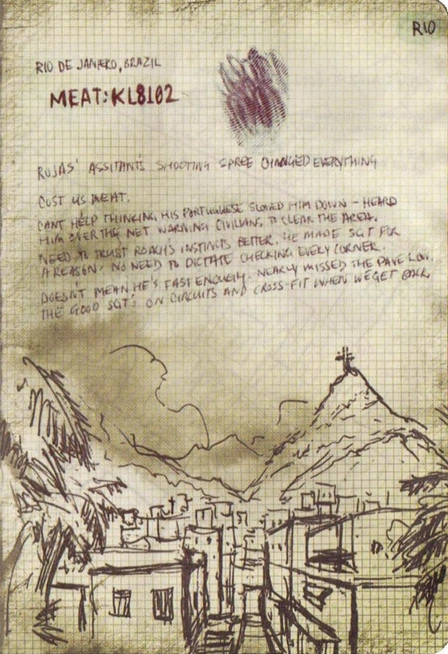 RIO
RIO DE JANERO, BRAZIL
MEAT:KL8102
ROJAS' ASSITANTS SHOOTING SPREE CHANGED EVERYTHING
COST US MEAT.
CANT HELP THINKING, HIS PORTUGUESE SLOWED HIM DOWN - HEARD
HIM OVER THE NET WARNING CIVILIANS, TO CLEAR THE AREA.
NEED TO TRUST ROACH'S INSTINCTS BETTER. HE MADE SGT FOR
A REASON. NO NEED TO DICTATE CHECKING EVERY CORNER.
DOESN'T MEAN HE'S FAST ENOUGH. NEARLY MISSED THE PAVE LOW.
THE GOOD SGT'S ON CIRCUITS AND CROSS-FIT WHEN WE GET BACK.